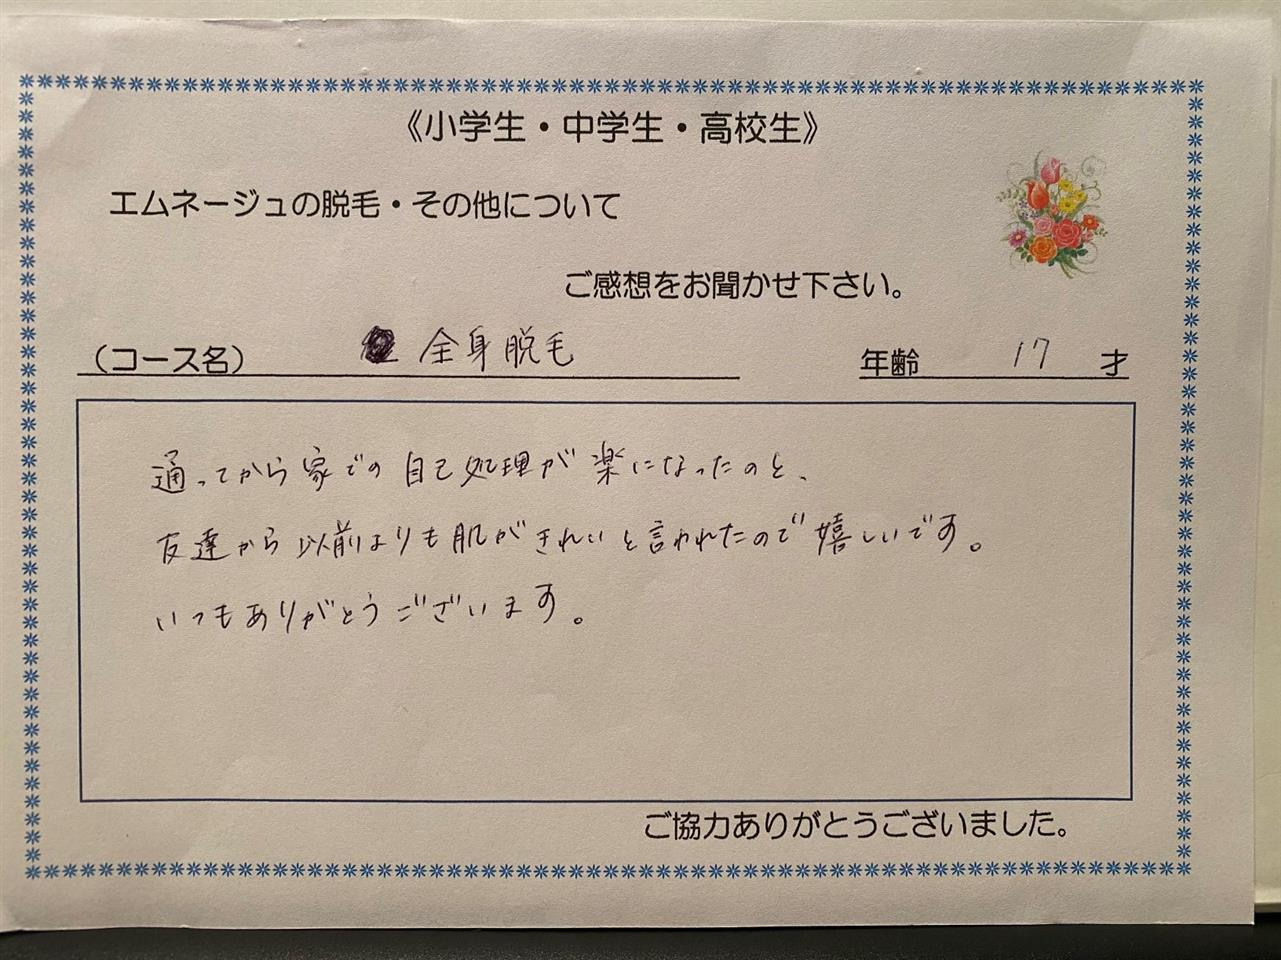 《小学生・中学生・高校生》
エムネージュの脱毛・その他について
ご感想をお聞かせ下さい。
（コース名） 全身脱毛 年齢 17 才
通ってから家での自己処理が楽になったのと、
友達から以前よりも肌がきれいと言われたので嬉しいです。
いつもありがとうございます。
ご協力ありがとうございました。